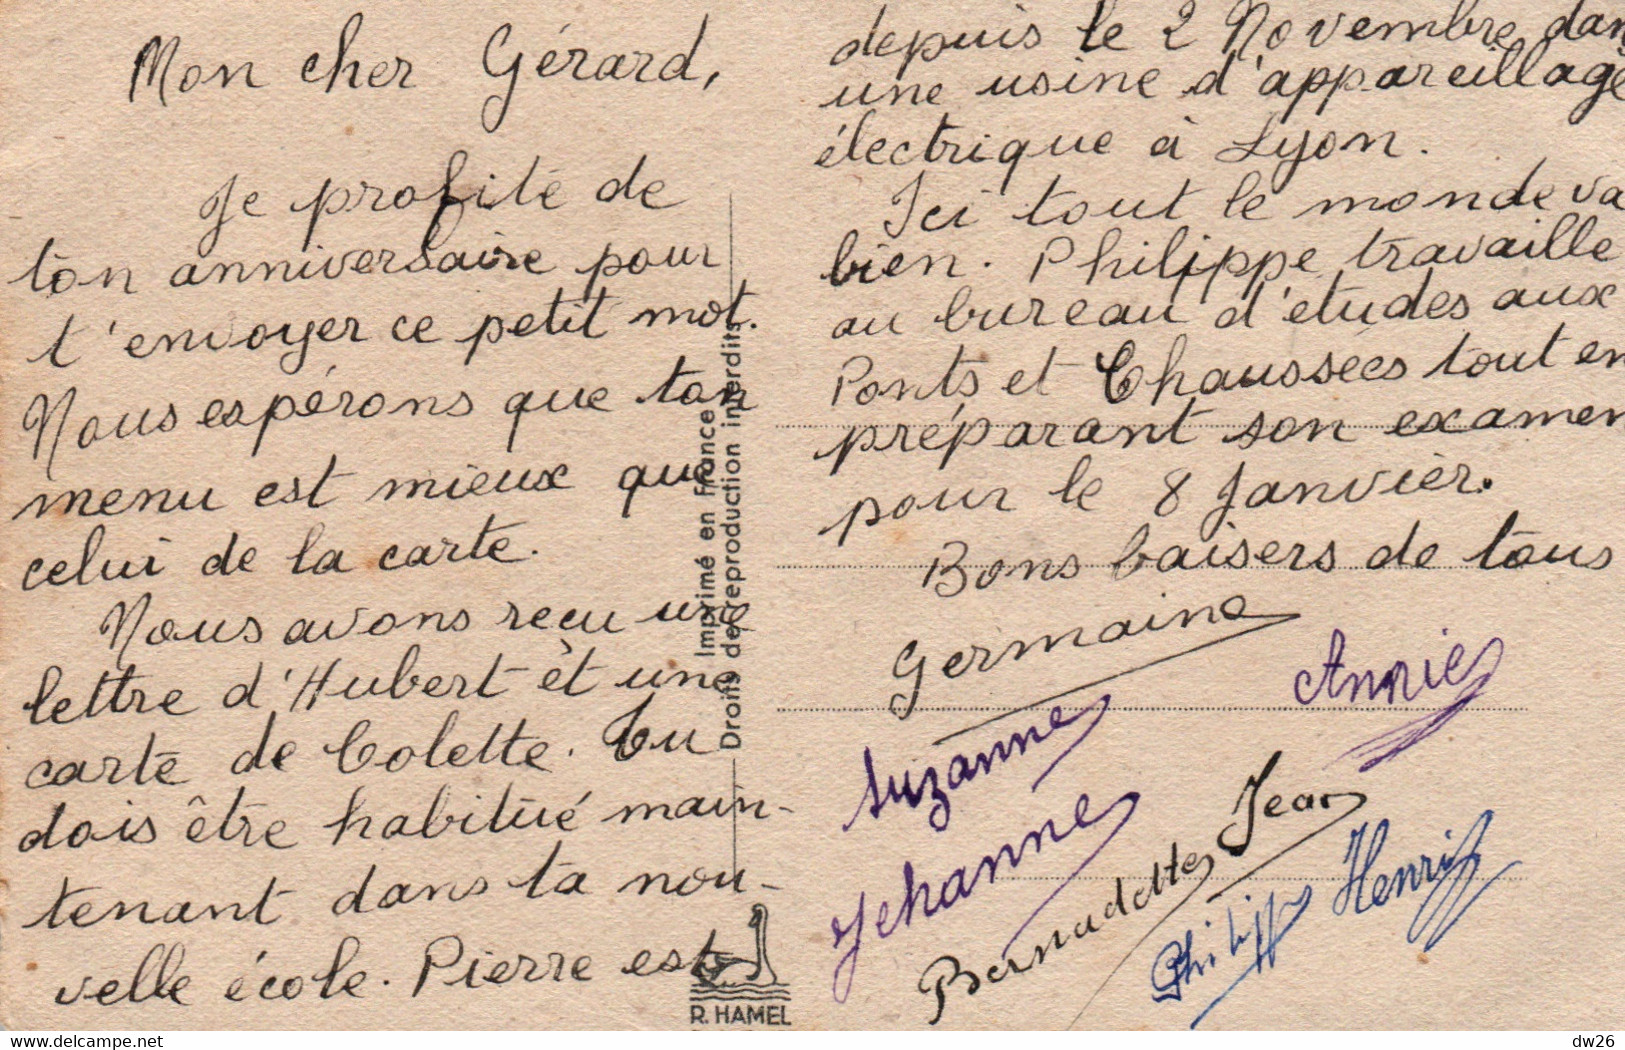 Mon cher Gérard,
Je profite de
ton anniversaire pour
t'envoyer ce petit mot.
Nous espérons que ton
menu est mieux que
celui de la carte.
Nous avons recu une
lettre d'Hubert et une
carte de Colette. Tu
dois être habitué main-
tenant dans ta nou-
velle école. Pierre est
depuis le 2 Novembre dans
une usine d'appareillage
électrique à Lyon.
Ici tout le monde va
bien. Philippe travaille
au bureau d'études aux
Ponts et Chaussées tout en
préparant son examen
pour le 8 Janvier.
Bons baisers de tous
Germaine
Annie
Suzanne
Jehanne
Jean
Bernadette
Henri
Philippe
Imprimé en France
Droits de reproduction interdits
R. HAMEL
dw26